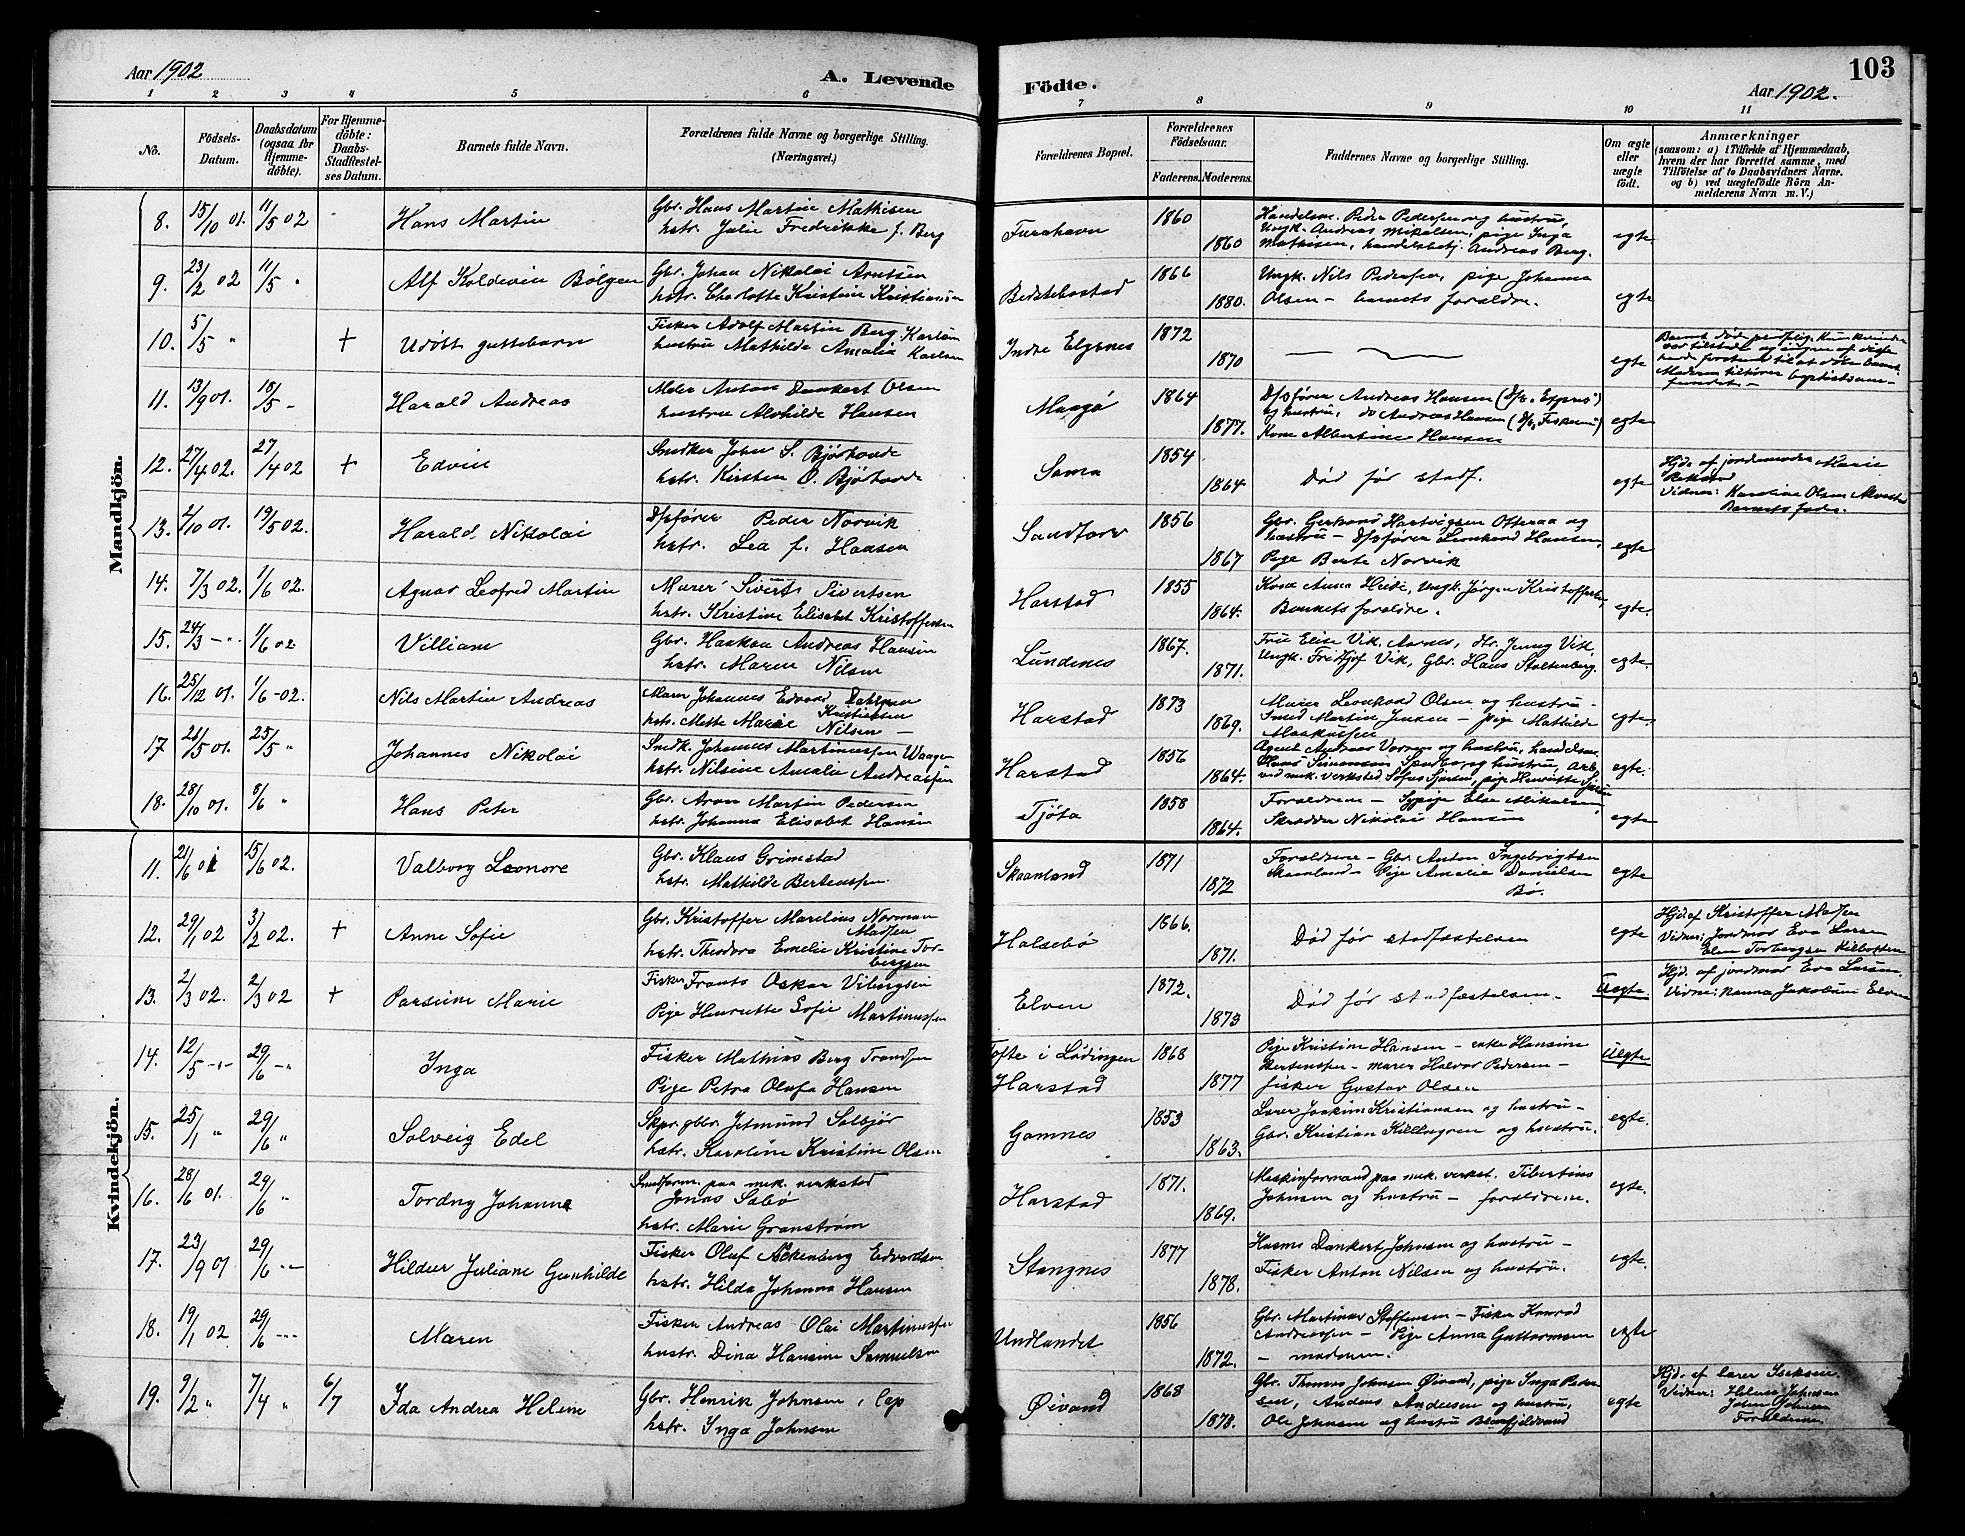 103
Aar 1902
A. Levende
Födte.
Aar 1902.
1 2 3 4 5 6 7 8 9 10 11
No.
Födsels-
Datum.
Daabsdatum
(ogsaa for
Hjemme-
döbte).
For Hjemme-
döbte:
Daabs-
Stadfæstel-
ses Datum.
Barnets fulde Navn.
Forældrenes fulde Navne og borgerlige Stilling.
(Næringsvei.)
Forældrenes Bopæl.
Forældrenes
Födselsaar.
Faderens. Moderens.
Faddernes Navne og borgerlige Stilling.
Om ægte
eller
uægte
födt.
Anmærkninger
(saasom: a) i Tilfælde af Hjemmedaab,
hvem der har forrettet samme, med
Tilföielse af to Daabsvidners Navne,
og b) ved uægtefödte Börn An-
melderens Navn m. V.)
Mandkjön.
8. 15/10 01. 11/5 02 Hans Martin
Gbr. Hans Martin Mathisen
hstr. Julie Fredrikke f. Berg
Furahavn 1860 1860
Handelsm. Peder Pedersen og hustru,
Ungk. Andreas Mikalsen, pige Inga
Mathisen, handelsbetj. Andreas Berg.
egte
9. 23/2 02 11/5 " Alf Koldevin Bölgen
Gbr. Johan Nikolai Arntsen
hstr. Charlotte Kristine Kristiansen
Bedstebostad 1866 1880.
Ungk. Nils Pedersen, pige Johanna
Olsen - barnets foraldre.
egte
10. 5/5 " + Udöbt guttebarn
Fisker Adolf Martin Berg Karlsen
hustru Mathilde Amalia Karlsen
Indre Elgsnes 1872 1870
egte
Barnet döde pludselig. Kun kvinder
var tilstede og ingen af disse
Moderen tilhörer baptistsam-
fundet -
11. 13/9 01. 18/5 - Harald Andreas
Maler Anton Dankert Olsen
hustru Alvhilde Hansen
Maagö 1864 1877.
Dpsförer Andreas Hansen (D/s "Express")
og hustru, do Andreas Hansen (D/s "Fiskeren")
Kone Albertine Hansen
egte
12. 27/4 02. 27/4 02 + Edvin
Snedker John S. Björhovde
hstr. Kirsten O. Björhovde
Sama 1854 1864
Död för stadf.
egte
Hjd. af jordemoder Marie
Vidner: Karoline Olsen
Barnets fader.
13. 2/10 01. 19/5 02. Harald Nikolai
Dpsförer Peder Norvik
hstr. Lea f. Hansen
Sandtorv 1856 1867
Gbr. Gerhard Hartvigsen Otteraa og
hustru - Dpsförer Leonhard Hansen,
Pige Berte Norvik
egte
14. 7/3 02. 1/6 02. Agnar Leofred Martin
Murer Sivert Sivertsen
hstr. Kristine Elisabet Kristoffersen
Harstad 1855 1864.
Kone Anna Heide, Ungk. Jörgen Kristoffersen,
Barnets foraldre.
egte.
15. 24/3 - " 1/6 02 Villiam
Gbr. Haakon Andreas Hansen
hstr. Maren Nilsen
Lundenes 1867. 1871.
Fru Elise Vik, Aarnes, Hr. Jenny Vik,
Ungk. Fritkjof Vik, Gbr. Hans Stoltenberg.
egte.
16. 25/12 01. 1/6 - 02. Nils Martin Andreas
Murer Johannes Edvard Dahlman
Kristiansen
hstr. Mette Marie Nilsen -
Harstad 1873 1869.
Murer Leonhard Olsen og hustru -
Smed Martin Jensen - pige Mathilde
Maakussen
egte.
17 26/5 01. 25/5 " Johannes Nikolai
Snedk. Johannes Martinussen Waagen
hstr. Nilsine Amalie Andreassen
Harstad 1856 1864.
Agent Andreas Vorren og hustru, handelsm.
Hans Simonsen og hustru, Arb.
ved mek. verksted Sofus Sörsen, pige Henriette
egte.
18. 28/10 01. 8/6 " Hans Peter
Gbr. Aron Martin Pedersen
hstr. Johanna Elisabet Hansen
Tjöta 1858 1864.
Foraldrene - Sypige Else Mikalsen,
Skrædder Nikolai Hansen
egte
Kvindekjön.
11. 21/6 01 15/6 02. Valborg Leonore
Gbr. Klaus Grimstad
hstr. Mathilde Bertenssen.
Skaanland 1871 1872
Foraldrene - Gbr. Anton Ingebrigtsen
Skaanland - Pige Amalie Danielsen
Bö.
egte
12. 29/1 02 3/2 02. + Anne Sofie
Gbr. Kristoffer Marelius Norman
Madsen
hstr. Theodora Emelie Kristine Tor-
bergsen
Halsebö 1866. 1871.
Död för stadfæstelsen
egte
Hjd af Kristoffer Madsen
Vidner: Jordmor Eva Larsen
Elen Torbergsen Kilbotten
13. 2/3 02. 2/3 02 + Parsium Marie
Fisker Frants Oskar Vibergsen
Pige Henriette Sofie Martinussen
Elven 1872. 1873
Död för stadfæstelsen.
Uegte
Hjd. af jordmor Eva Larsen.
Vidne: Nanna Jakobsen Elven
14. 12/5 - " - 29/6 - " Inga
Fisker Mathias Berg Trondsen
Pige Petra Olufa Hansen
Tofte i Lödingen
Harstad 1868 1877
Pige Kristine Hansen - enke Hansine
Bertenssen - murer Halvor Pedersen -
fisker Gustav Olsen
Uegte
15. 25/1 " 29/6 " Solveig Edel
Skpr. gbr. Jetmund Solbjör
hstr. Karoline Kristine Olsen
Gamnes 1853 1863.
Lærer Joakim Kristiansen og hustru -
Gbr. Kristian Killngren og hustru.
egte.
16. 28/6 01. 29/6 " Tordny Johanna
Smedform. paa mek. verksted
Jonas Sæbö
hstr. Marie Granström
Harstad 1871. 1869.
Maskinformand paa mek. verkst. Tibertius
Johnsen og hustru - foraldrene.
egte.
17. 23/9 01 29/6 - - Hildur Juliane Gunhilde
Fisker Oluf Edvardsen
hstr. Hilda Johanna Hansen
Stangnes 1877 1878.
Husm. Dankert Johnsen og hustru -
Fisker Anton Nilsen og hustru.
egte.
18. 19/1 02 29/6 - - - Maren
Fisker Andreas Olai Martinussen
hustr. Dina Hansine Samuelsen
Undlandet 1856 1872.
Gbr. Martinus Steffensen - Fisker Konrad
Andreassen - Pige Anna Guttormsen
- moderen.
egte
19. 9/2 " 7/4 " 6/7 Ida Andrea Helene
Gbr. Henrik Johnsen, Lap
hstr. Inga Johnsen
Øivand 1868 1878.
Gbr. Thomas Johnsen Øivand, pige Inga Peder-
sen, Anders Andersen og hustru,
Ole Johnsen og hustru
egte
Hjd. af lærer Iseksen.
Vidner: Helene Johnsen
John Johnsen
Foraldrene